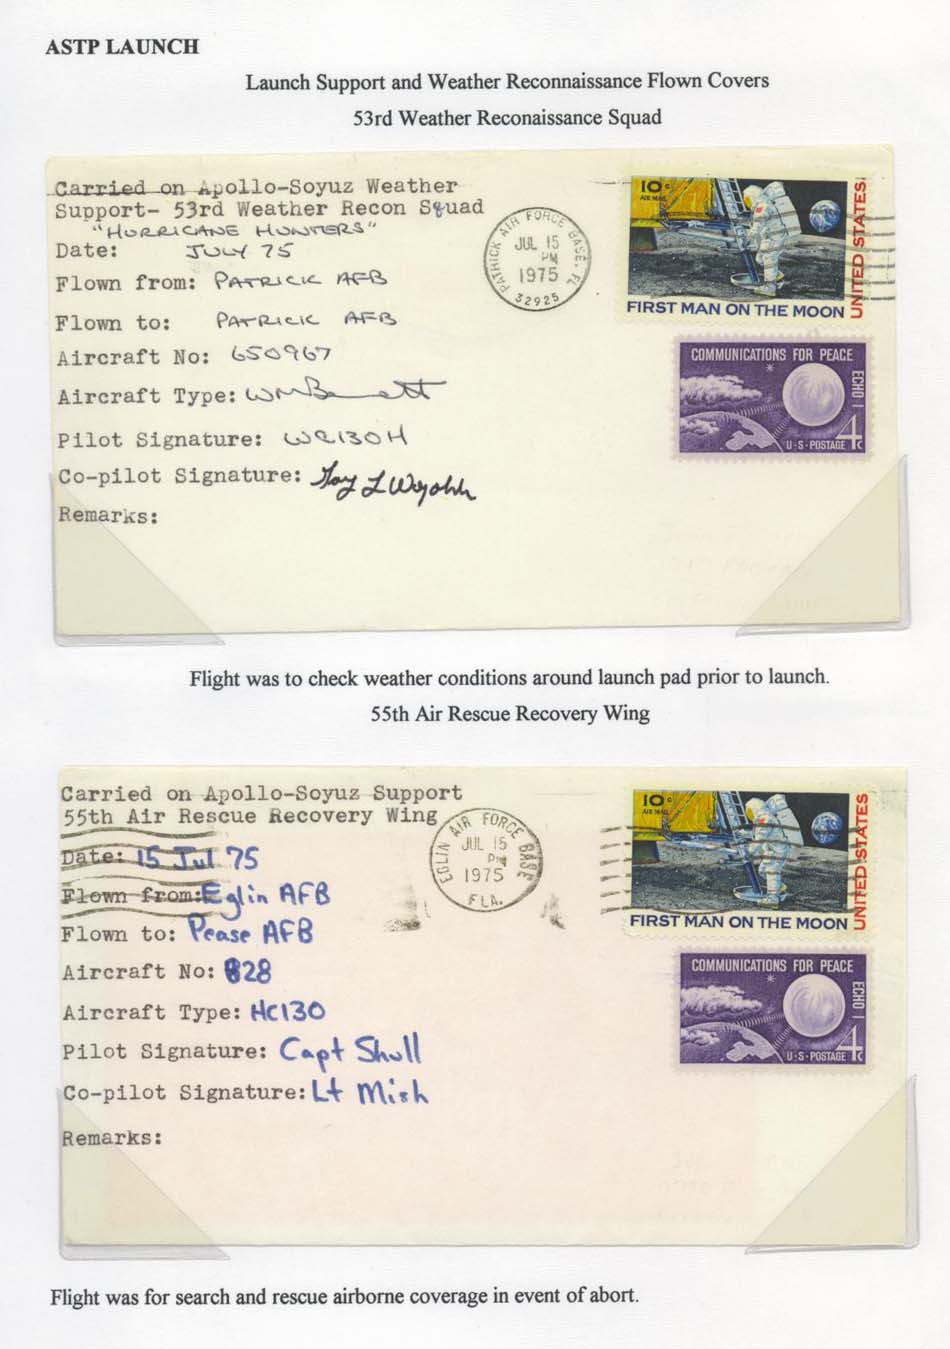 ASTP LAUNCH
Launch Support and Weather Reconnaissance Flown Covers
53rd Weather Reconaissance Squad
Carried on Apollo-Soyuz Weather
Support- 53rd Weather Recon Squad
"HURRICANE HUNTERS"
Date: JULY 75
Flown from: PATRICK AFB
Flown to: PATRICK AFB
Aircraft No: 650967
Aircraft Type:
Pilot Signature: WC130H
Co-pilot Signature:
Remarks:
PATRICK AIR FORCE BASE, FL
JUL 15
PM
1975
32925
10c
AIR MAIL
UNITED STATES
FIRST MAN ON THE MOON
COMMUNICATIONS FOR PEACE
ECHO I
U·S·POSTAGE 4c
Flight was to check weather conditions around launch pad prior to launch.
55th Air Rescue Recovery Wing
Carried on Apollo-Soyuz Support
55th Air Rescue Recovery Wing
Date: 15 Jul 75
Flown from: Eglin AFB
Flown to: Pease AFB
Aircraft No: 828
Aircraft Type: HC130
Pilot Signature: Capt Shull
Co-pilot Signature: Lt Mish
Remarks:
EGLIN AIR FORCE BASE
JUL 15
PM
1975
FLA.
10c
AIR MAIL
UNITED STATES
FIRST MAN ON THE MOON
COMMUNICATIONS FOR PEACE
ECHO I
U·S·POSTAGE 4c
Flight was for search and rescue airborne coverage in event of abort.